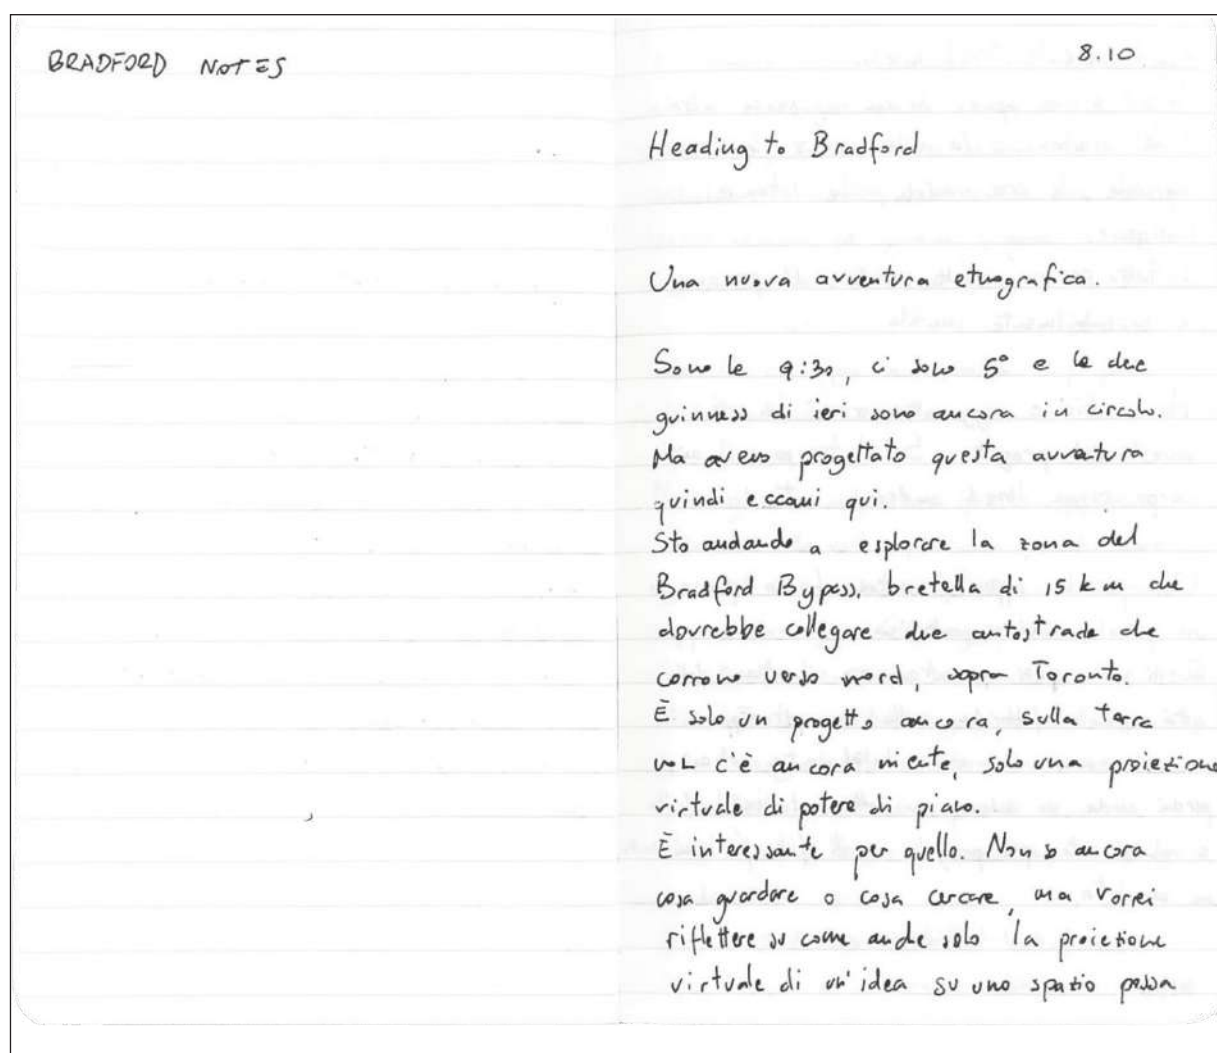 BRADFORD NOTES
8.10
Heading to Bradford
Una nuova avventura etnografica.
Sono le 9:30, ci sono 5° e le due
guinness di ieri sono ancora in circolo.
Ma avevo progettato questa avventura
quindi eccomi qui.
Sto andando a esplorare la zona del
Bradford Bypass, bretella di 15 km che
dovrebbe collegare due autostrade che
corrono verso nord, sopra Toronto.
È solo un progetto ancora, sulla terra
non c'è ancora niente, solo una proiezione
virtuale di potere di piano.
È interessante per quello. Non so ancora
cosa guardare o cosa cercare, ma vorrei
riflettere su come anche solo la proiezione
virtuale di un'idea su uno spazio possa